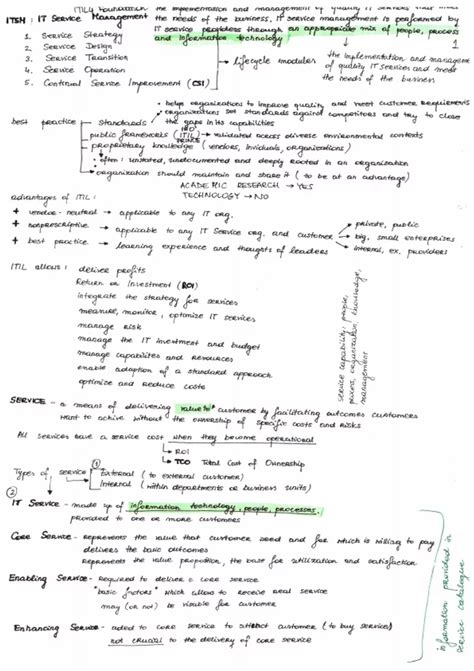 ITIL4 Foundation the implementation and management of quality IT services that meet
ITSM : IT Service Management the needs of the business, IT service management is performed by
IT service providers through an appropriate mix of people, process
and information technology
1. Service Strategy
2. Service Design
3. Service Transition
4. Service Operation
5. Continual Service Improvement (CSI)
→ lifecycle modules
the implementation and management
of quality IT services and meet
the needs of the business
• helps organizations to improve quality and meet customer requirements
• organizations set standards against competitors and try to close
the gaps in its capabilities
best practice
standards
public frameworks (ITIL) → validated across diverse environmental contexts
proprietary knowledge (vendors, individuals, organizations)
• often: unstated, undocumented and deeply rooted in an organization
• organization should maintain and share it (to be at an advantage)
ACADEMIC RESEARCH → YES
TECHNOLOGY → NO
advantages of ITIL:
+ vendor-neutral → applicable to any IT org.
+ nonprescriptive → applicable to any IT Service org. and customer
+ best practice → learning experience and thoughts of leaders
private, public
big, small enterprises
internal, ex. providers
ITIL allows: deliver profits
Return on Investment (ROI)
integrate the strategy for services
measure, monitor, optimize IT services
manage risk
manage the IT investment and budget
manage capabilities and resources
enable adoption of a standard approach
optimize and reduce costs
service capability, people,
process, organization, knowledge,
management
SERVICE - a means of delivering value to customer by facilitating outcomes customers
want to achive without the ownership of specific costs and risks
All services have a service cost when they become operational
↳ ROI
↳ TCO Total Cost of Ownership
Types of service
① External (to external customer)
Internal (within departments or business units)
②
IT Service - made up of information technology, people, processes.
provided to one or more customers
Core Service - represents the value that customer need and for which is willing to pay
delivers the basic outcomes
Represents the value proposition, the base for utilization and satisfaction
Enabling Service - required to deliver a core service
"basic factors" which allow to receive real service
may (or not) be visable for customer
Enhancing Service - added to core service to attract customer (to buy services)
not crucial to the delivery of core service
information provided in
service catalogue